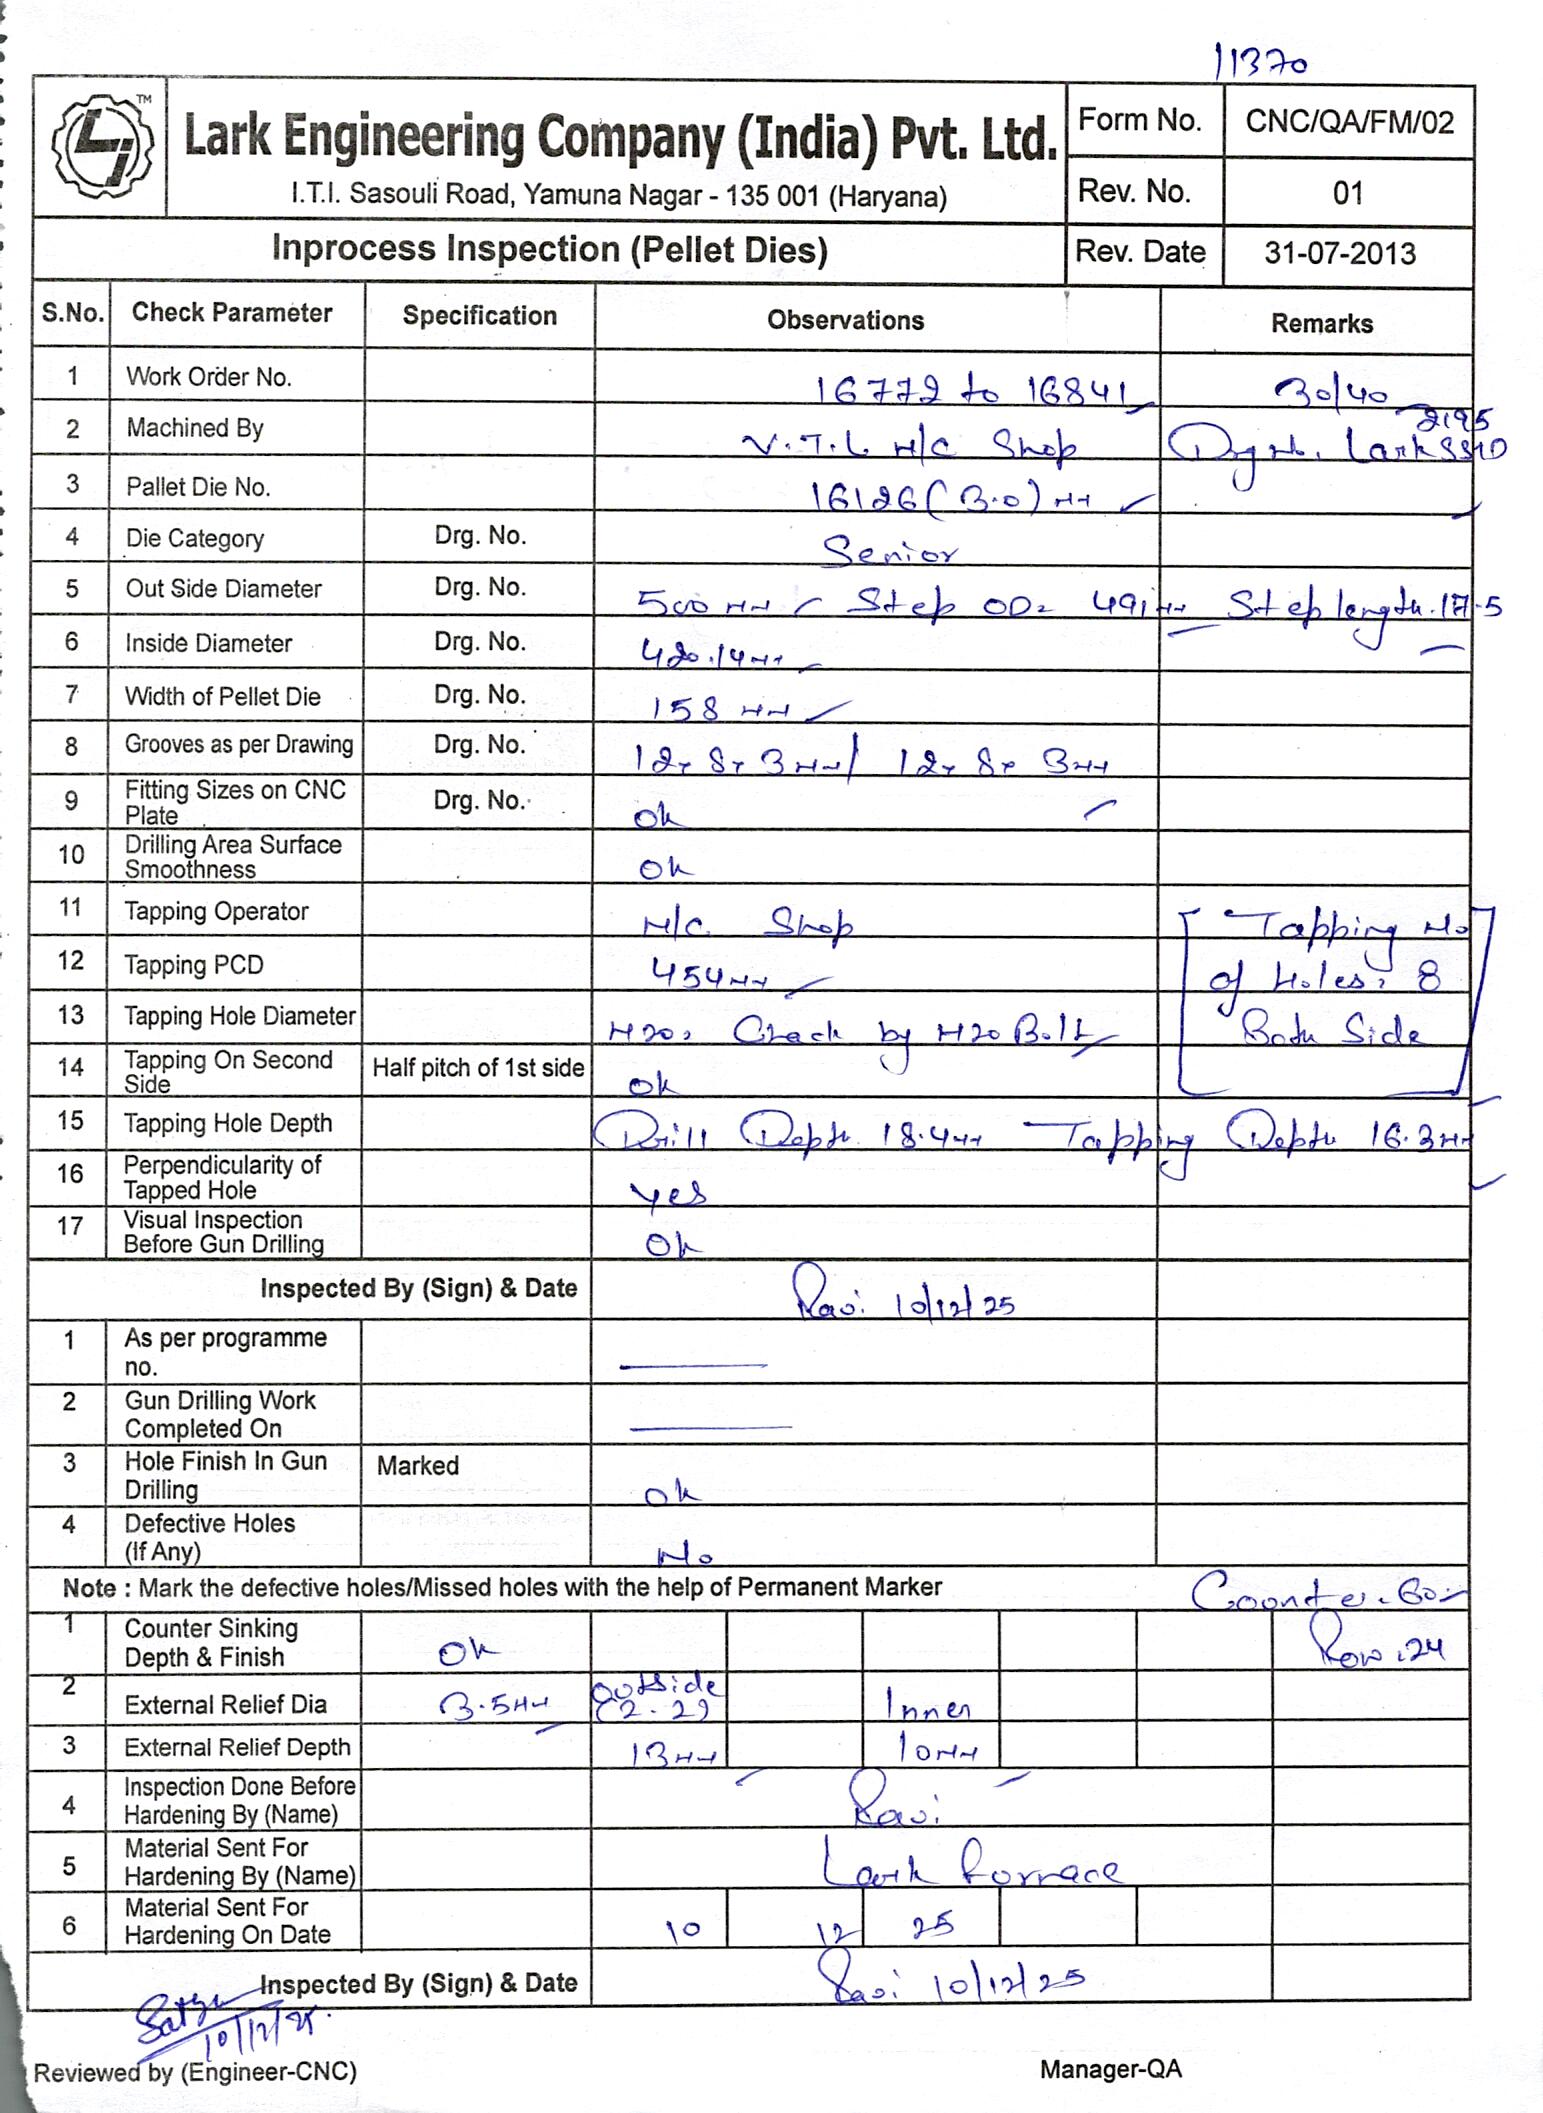 11370
TM
Lark Engineering Company (India) Pvt. Ltd.
I.T.I. Sasouli Road, Yamuna Nagar - 135 001 (Haryana)
Form No. CNC/QA/FM/02
Rev. No. 01
Inprocess Inspection (Pellet Dies) Rev. Date 31-07-2013
S.No. Check Parameter Specification Observations Remarks
1 Work Order No. 16772 to 16841 30/40
2 Machined By V.T.L M/C Shop Drg No. Lark SSHD 2195
3 Pallet Die No. 16126 (3.0) MM
4 Die Category Drg. No. Senior
5 Out Side Diameter Drg. No. 500 MM Step OD= 491 MM Step length. 17.5
6 Inside Diameter Drg. No. 420.14 MM
7 Width of Pellet Die Drg. No. 158 MM
8 Grooves as per Drawing Drg. No. 12x 8x 3 MM / 12x 8x 3 MM
9 Fitting Sizes on CNC Plate Drg. No. Ok
10 Drilling Area Surface Smoothness Ok
11 Tapping Operator M/C Shop Tapping No
12 Tapping PCD 454 MM of Holes: 8
13 Tapping Hole Diameter M20, Check by M20 Bolt Both Side
14 Tapping On Second Side Half pitch of 1st side Ok
15 Tapping Hole Depth Drill Depth 18.4 MM Tapping Depth 16.3 MM
16 Perpendicularity of Tapped Hole Yes
17 Visual Inspection Before Gun Drilling Ok
Inspected By (Sign) & Date Ravi 10/12/25
1 As per programme no.
2 Gun Drilling Work Completed On
3 Hole Finish In Gun Drilling Marked Ok
4 Defective Holes (If Any) No
Note : Mark the defective holes/Missed holes with the help of Permanent Marker Counter. 60
1 Counter Sinking Depth & Finish Ok Row. 24
2 External Relief Dia 3.5 MM Outside (2.2) Inner
3 External Relief Depth 13 MM 10 MM
4 Inspection Done Before Hardening By (Name) Ravi
5 Material Sent For Hardening By (Name) Lark Furnace
6 Material Sent For Hardening On Date 10 12 25
Inspected By (Sign) & Date Ravi 10/12/25
10/12/25.
Reviewed by (Engineer-CNC) Manager-QA